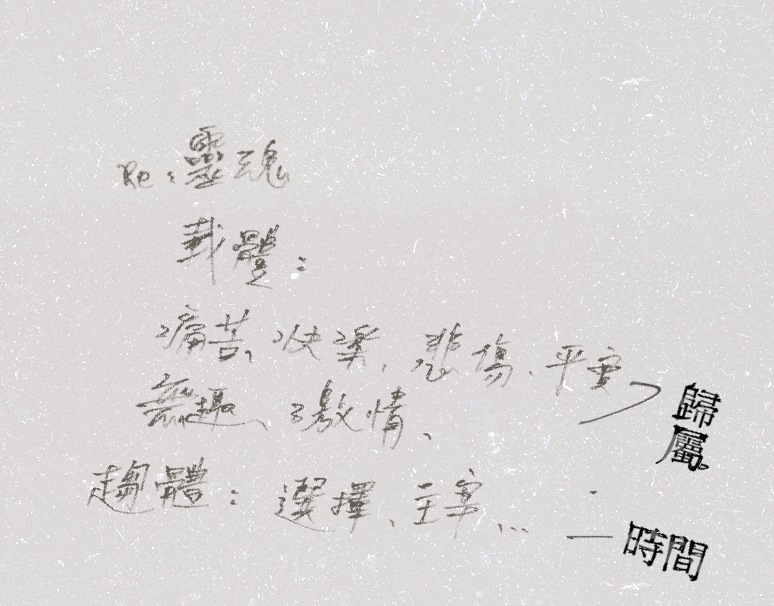 Re:靈魂
載體:
痛苦、快樂、悲傷、平安
無趣、激情、
歸屬。
趨體:選擇、主宰...
—時間